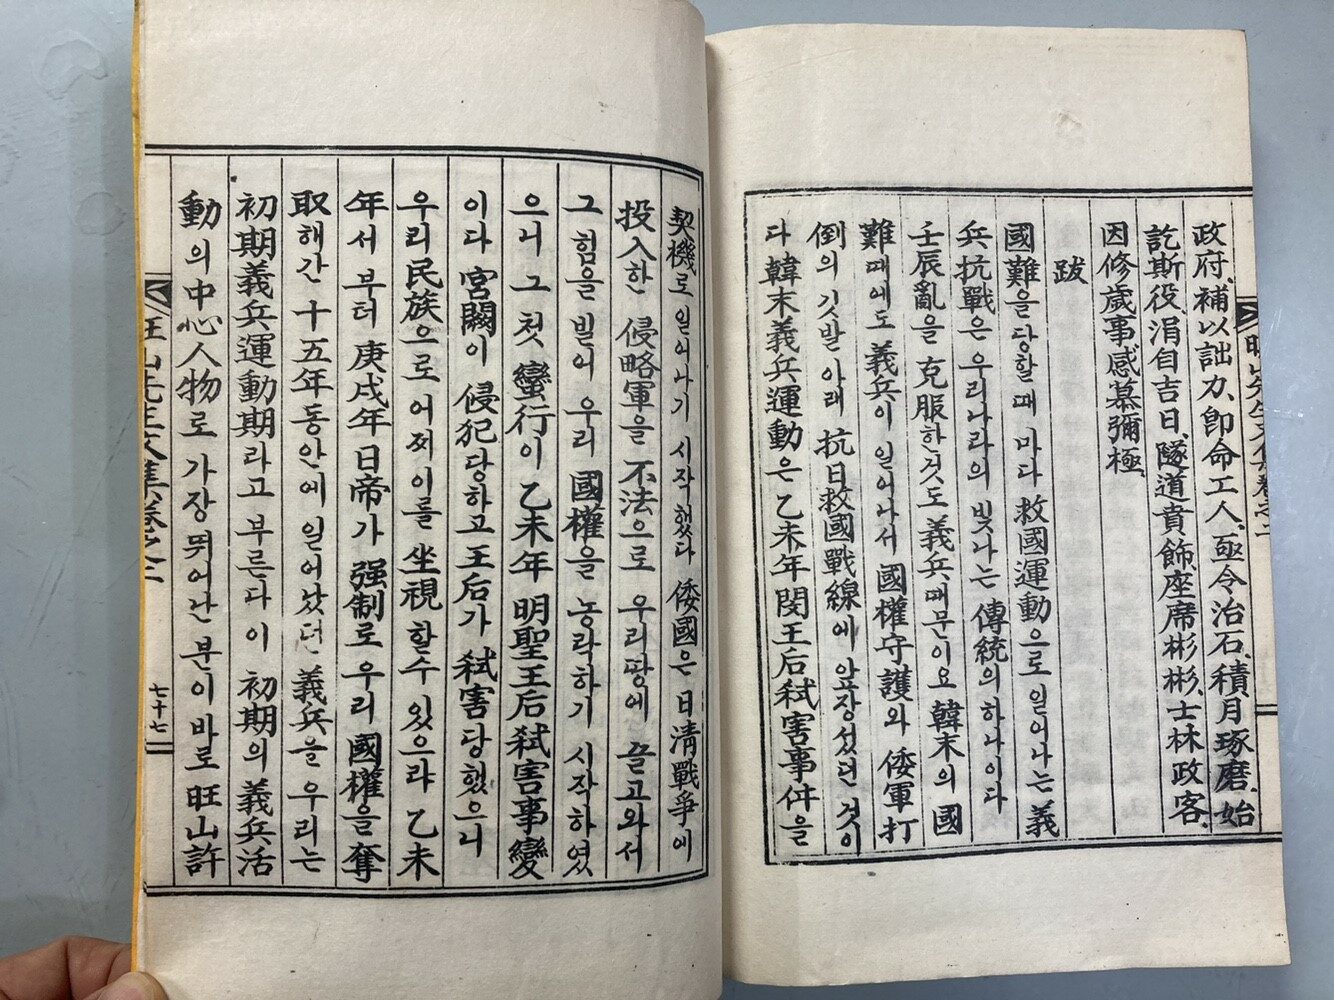 政府、補以詘力、卽命工人、亟令治石、積月琢磨、始
訖斯役、涓自吉日、隧道賁飾、座席彬彬、士林政客、
因修歲事感慕彌極、
跋
國難을당할때 마다 救國運動으로 일어나는 義
兵抗戰은 우리나라의 빛나는 傳統의하나이다
壬辰亂을 克服한것도 義兵때문이요 韓末의 國
難때에도 義兵이 일어나서 國權守護와 倭軍打
倒의 깃발 아래 抗日救國戰線에 앞장섰던 것이
다 韓末義兵運動은 乙未年閔王后弑害事件을
契機로 일어나기 시작했다 倭國은 日淸戰爭에
投入한 侵略軍을 不法으로 우리땅에 끌고와서
그 힘을 빌어 우리 國權을 농락하기 시작하였
으니 그 첫 蠻行이 乙未年 明聖王后弑害事變
이다 宮闕이 侵犯당하고 王后가 弑害당했으니
우리民族으로 어찌이를 坐視할수 있으랴 乙未
年서 부터 庚戌年日帝가 强制로 우리 國權을 奪
取해간 十五年동안에 일어났던 義兵을 우리는
初期義兵運動期라고 부른다 이 初期의 義兵活
動의 中心人物로 가장 뛰어난 분이 바로 旺山許
旺山先生文集卷之二
七十七